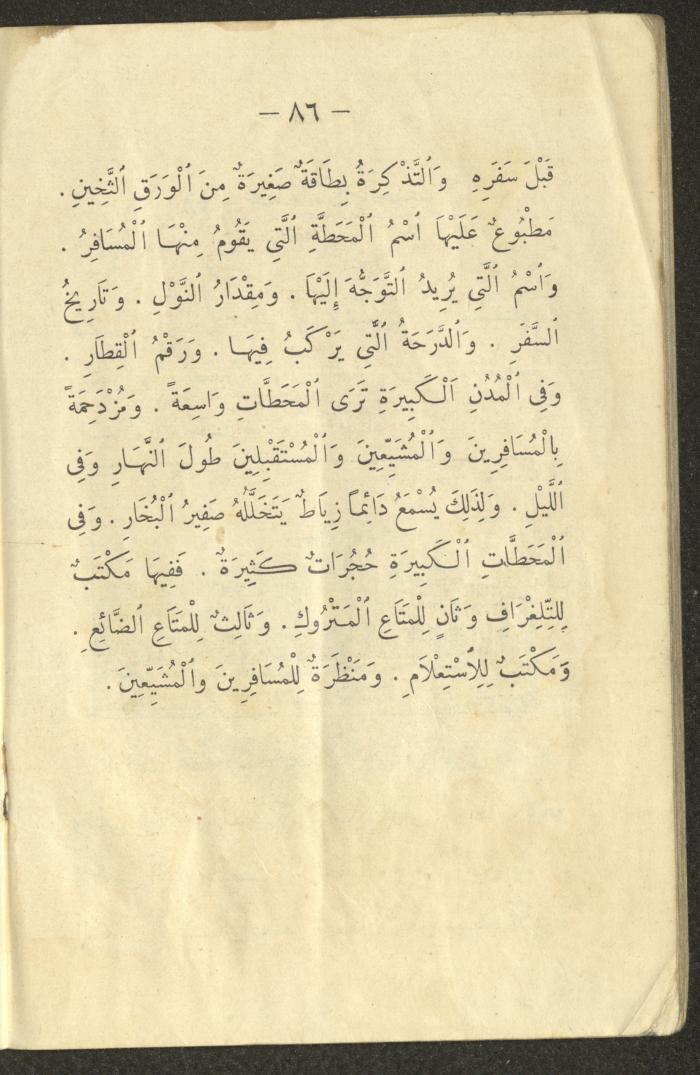 — ٨٦ —
قَبْلَ سَفَرِهِ وَٱلتَّذْكِرَةُ بِطَاقَةٌ صَغِيرَةٌ مِنَ ٱلْوَرَقِ ٱلثَّخِينِ .
مَطْبُوعٌ عَلَيْهَا ٱسْمُ ٱلْمَحَطَّةِ ٱلَّتِي يَقُومُ مِنْهَا ٱلْمُسَافِرُ .
وَٱسْمُ ٱلَّتِي يُرِيدُ ٱلتَّوَجُّهَ إِلَيْهَا . وَمِقْدَارُ ٱلنَّوْلِ . وَتَارِيخُ
ٱلسَّفَرِ . وَٱلدَّرَجَةُ ٱلَّتِي يَرْكَبُ فِيهَا . وَرَقْمُ ٱلْقِطَارِ .
وَفِى ٱلْمُدُنِ ٱلْكَبِيرَةِ تَرَى ٱلْمَحَطَّاتِ وَاسِعَةً . وَمُزْدَحِمَةً
بِٱلْمُسَافِرِينَ وَٱلْمُشَيِّعِينَ وَٱلْمُسْتَقْبِلِينَ طُولَ ٱلنَّهَارِ وَفِى
ٱللَّيْلِ . وَلِذَلِكَ يُسْمَعُ دَائِماً زِيَاطٌ يَتَخَلَّلُهُ صَفِيرُ ٱلْبُخَارِ . وَفِى
ٱلْمَحَطَّاتِ ٱلْكَبِيرَةِ حُجُرَاتٌ كَثِيرَةٌ . فَفِيهَا مَكْتَبٌ
لِلتِّلِغْرَافِ وَثَانٍ لِلْمَتَاعِ ٱلْمَتْرُوكِ . وَثَالِثٌ لِلْمَتَاعِ ٱلضَّائِعِ .
وَمَكْتَبٌ لِلِٱسْتِعْلَامِ . وَمَنْظَرَةٌ لِلْمُسَافِرِينَ وٱلْمُشَيِّعِينَ .